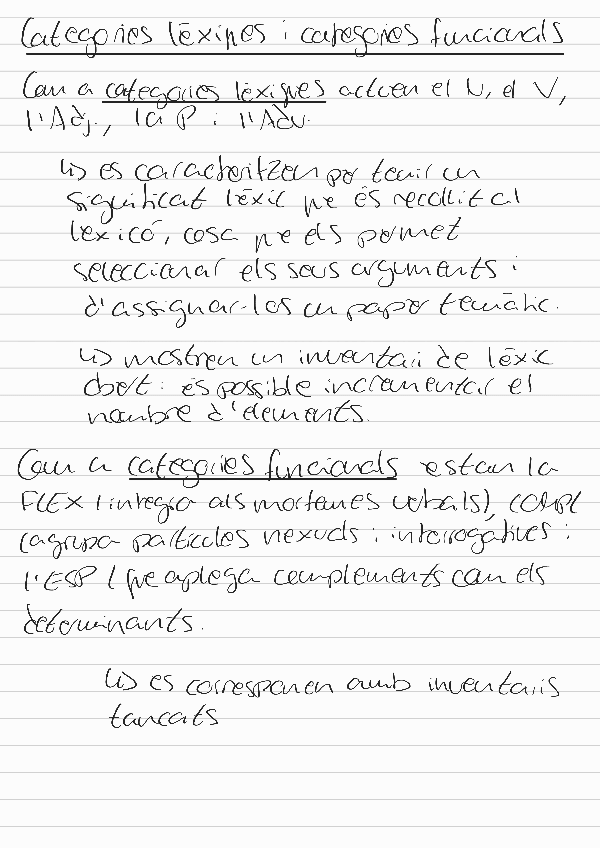 Categories lèxiques i categories funcionals
Com a categories lèxiques actuen el N, el V,
l'Adj., la P i l'Adv.
↳ es caracteritzen per tenir un
significat lèxic que és recollit al
lexicó, cosa que els permet
seleccionar els seus arguments i
d'assignar-los un paper temàtic.
↳ mostren un inventari de lèxic
obert: és possible incrementar el
nombre d'elements.
Com a categories funcionals estan la
FLEX (integra als morfemes verbals), COMPL
(agrupa partícules nexuals i interrogatives i
l'ESP (que aplega complements com els
determinants.
↳ es corresponen amb inventaris
tancats